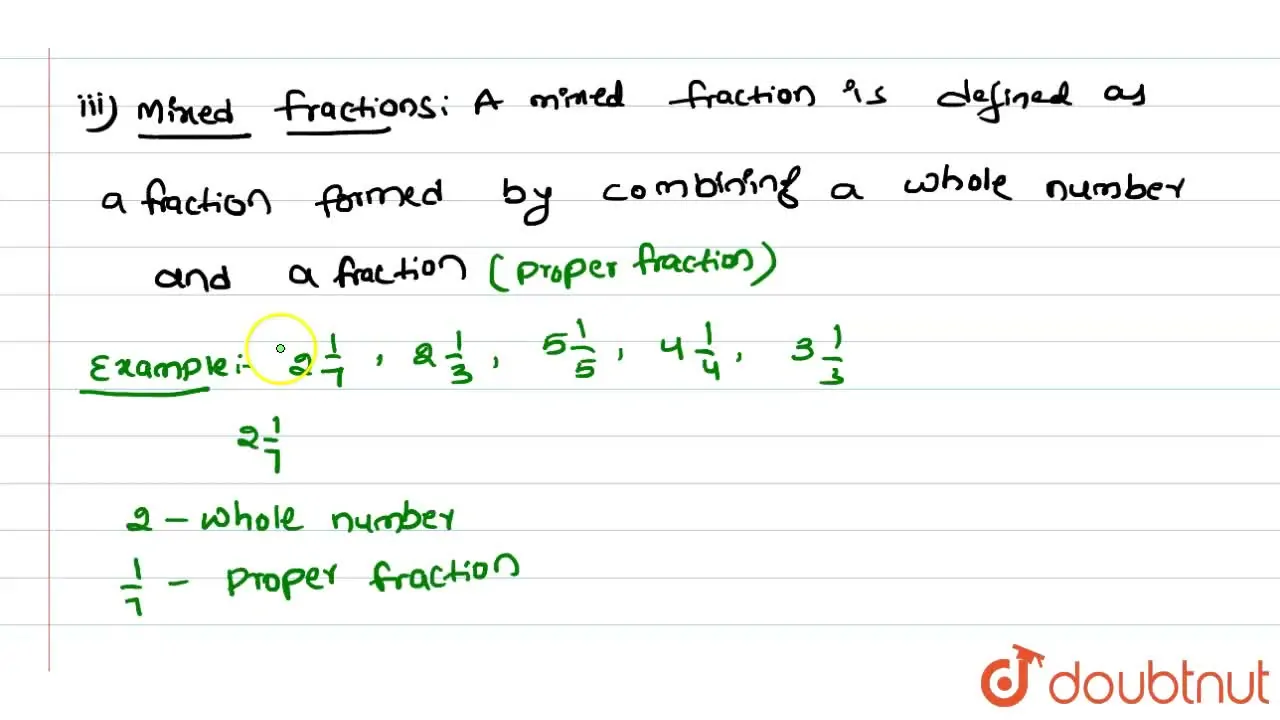 iii) Mixed fractions: A mixed fraction is defined as
a fraction formed by combining a whole number
and a fraction (proper fraction)
Example:- 2 1/7, 2 1/3, 5 1/5, 4 1/4, 3 1/3
2 1/7
2 - whole number
1/7 - proper fraction
doubtnut